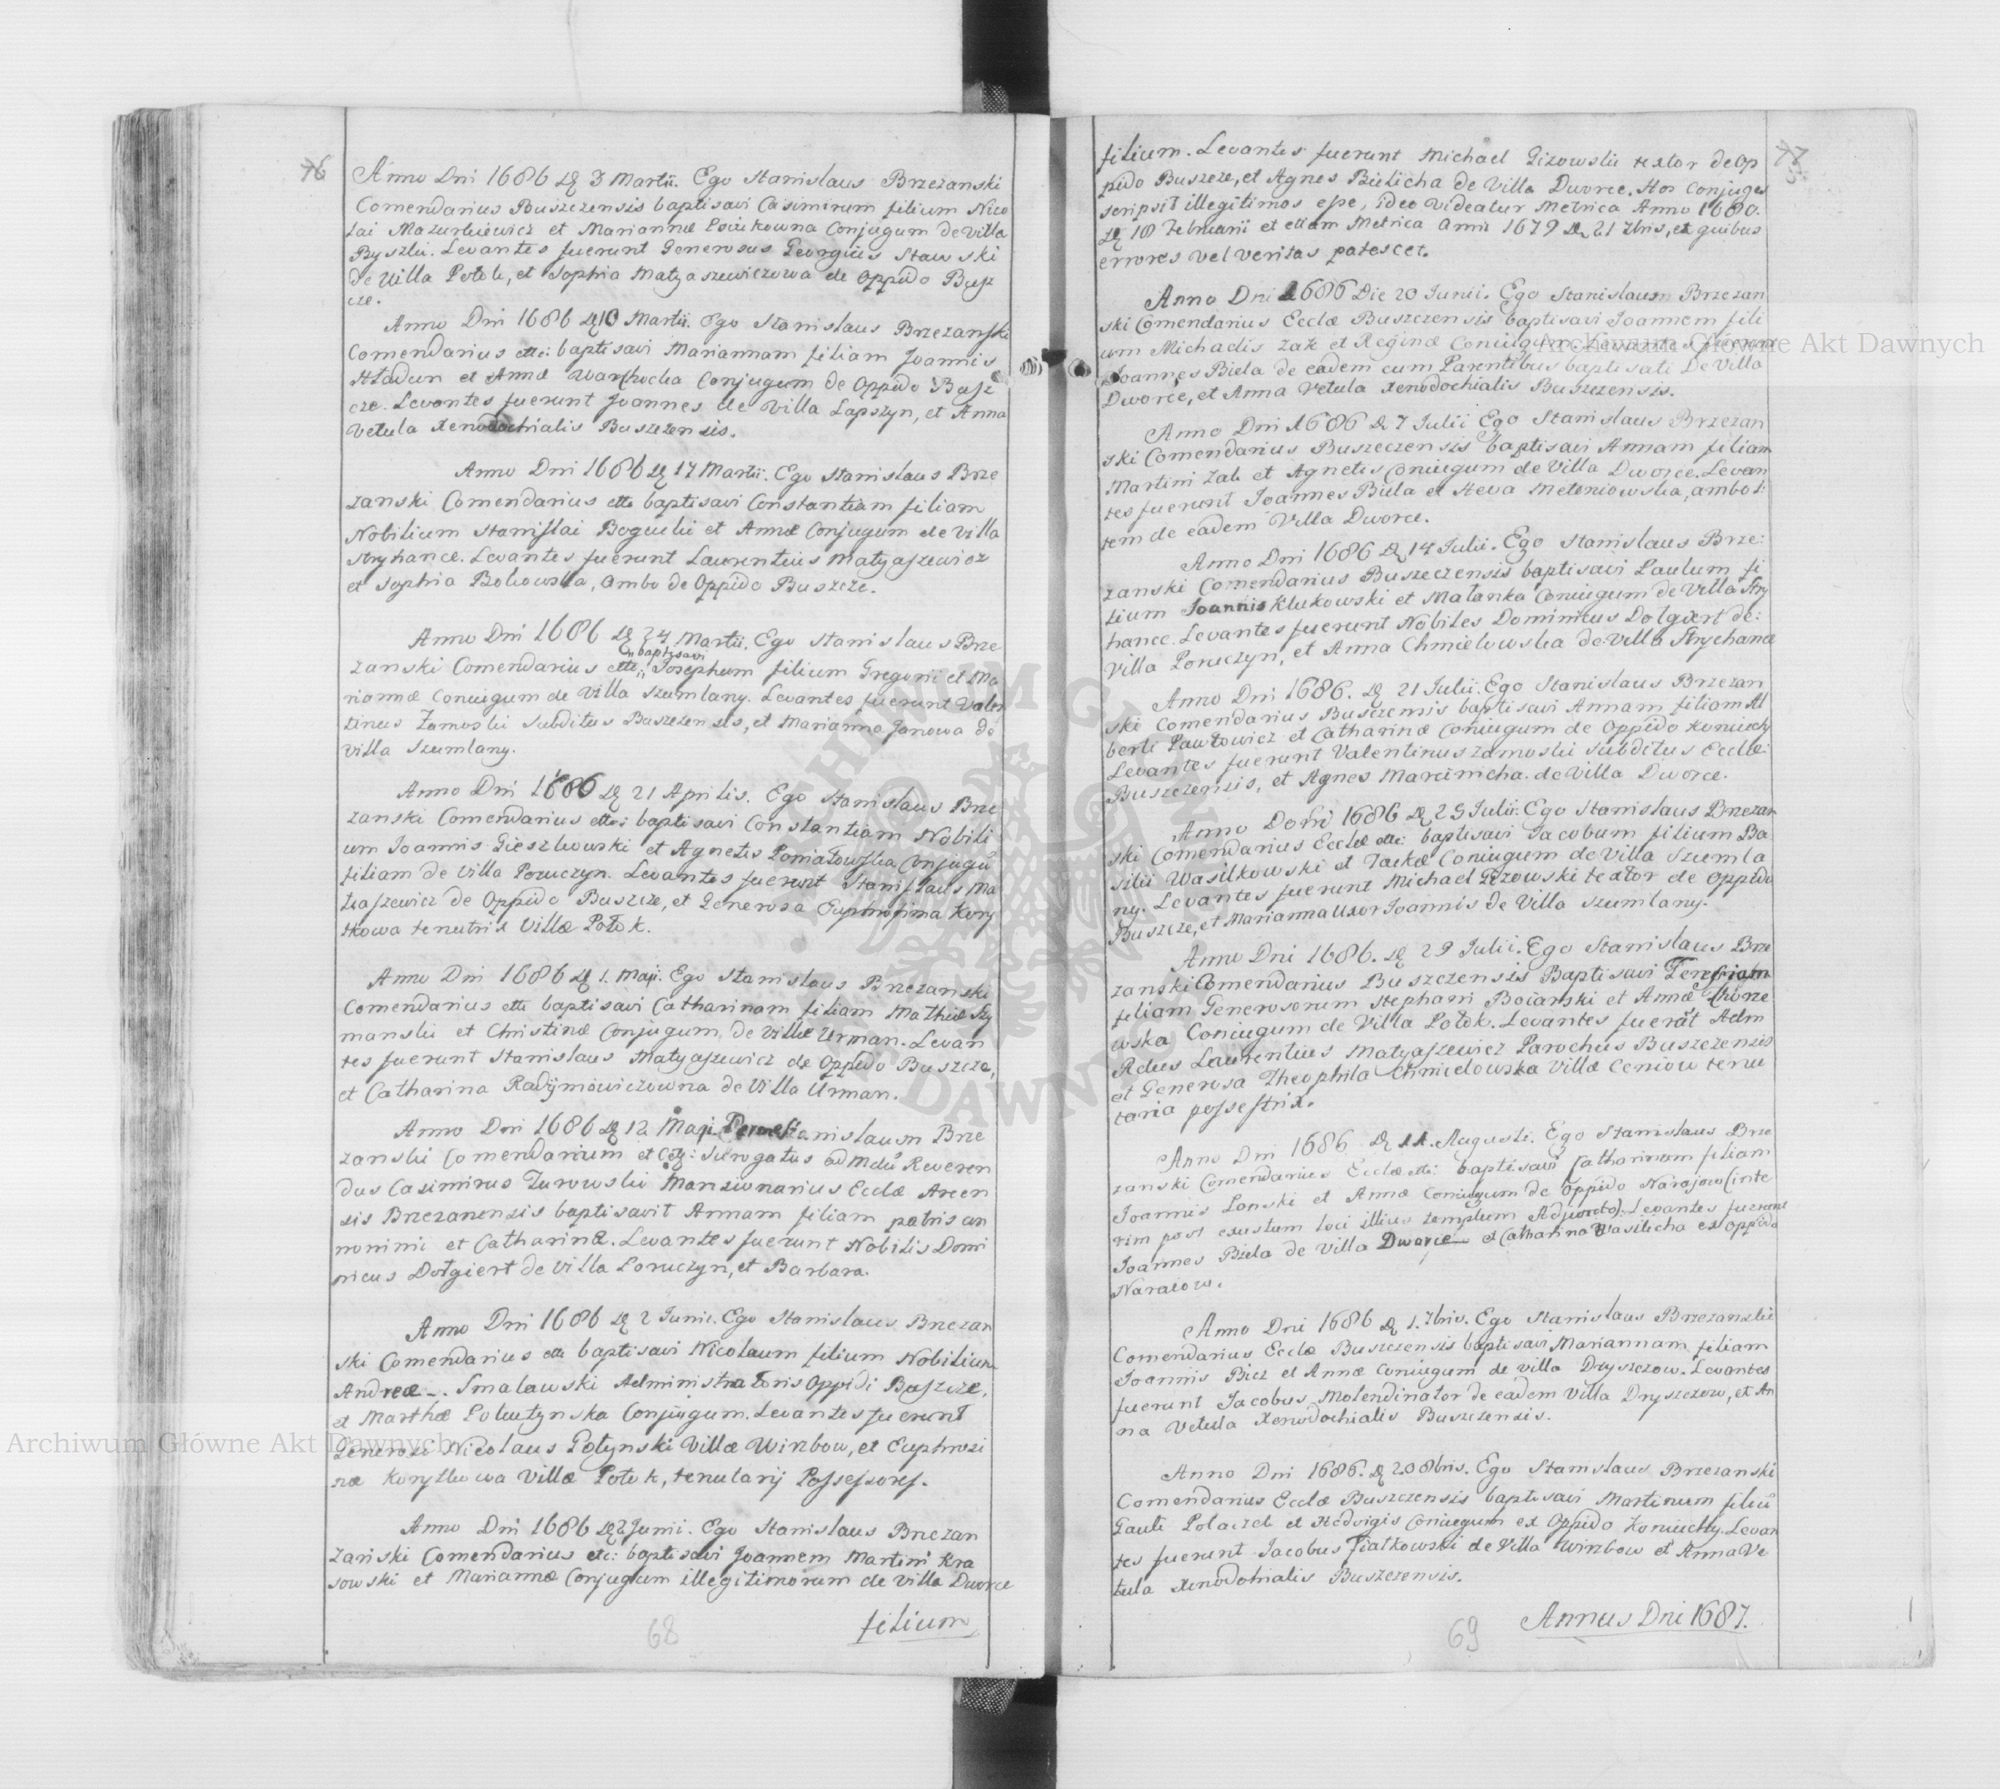 76
Anno Dni 1686 D 3 Martii. Ego Stanislaus Brzezanski
Comendarius Buszczensis baptisavi Casimirum filium Nico
lai Mazurkiewicz et Mariannæ Conjugum de Villa
Byszki. Levantes fuerunt Generosus Georgius Stawski
de Villa Potok, et Sophia Matyaszewiczowa de Oppido Busz
cze.
Anno Dni 1686 D 10 Martii. Ego Stanislaus Brzezanski
Comendarius etc: baptisavi Mariannam filiam Joannis
Hładun et Annæ Conjugum de Oppido Busz
cze. Levantes fuerunt Joannes de Villa Lapszyn, et Anna
Vetula Xenodochialis Buszczensis.
Anno Dni 1686 D 17 Martii. Ego Stanislaus Brze
zanski Comendarius etc baptisavi Constantiam filiam
Nobilium Stanislai Bogucki et Annæ Conjugum de Villa
Stryhance. Levantes fuerunt Laurentius Matyaszewicz
et Sophia Bokowska, ambo de Oppido Buszcze.
Anno Dni 1686 D 24 Martii. Ego Stanislaus Brze
baptisavi
zanski Comendarius etc: Josephum filium Gregorii et Ma
riannæ Coniugum de Villa Szumlany. Levantes fuerunt Valen
tinus Zamoski Subditus Buszczensis, et Marianna Janowa de
Villa Szumlany.
Anno Dni 1686 D 21 Aprilis. Ego Stanislaus Brze
zanski Comendarius etc: baptisavi Constantiam Nobili
um Joannis Gieszkowski et Agnetis Poniatowska Conjugũ
filiam de Villa Poruczyn. Levantes fuerunt Stanislaus Ma
tyaszewicz de Oppido Buszcze, et Generosa Euphrosina Kory
tkowa tenutrix Villæ Potok.
Anno Dni 1686 D 1. Maji. Ego Stanislaus Brzezanski
Comendarius etc baptisavi Catharinam filiam Mathiæ Szy
manski et Christinæ Conjugum de Villæ Urman. Levan
tes fuerunt Stanislaus Matyaszewicz de Oppido Buszcze,
et Catharina Radzymowiczowna de Villa Urman.
Anno Dni 1686 D 12 Maji. Per me Stanislaum Brze
zanski Comendarium etc: Surogatus adMdũ Reveren
dus Casimirus Turowski Mansionarius Ecclæ Arcen
sis Brzezanensis baptisavit Annam filiam patris an
nonimi et Catharinæ. Levantes fuerunt Nobilis Domi
nicus Dołgiert de Villa Poruczyn, et Barbara.
Anno Dni 1686 D 2 Junii. Ego Stanislaus Brzezan
ski Comendarius etc baptisavi Nicolaum filium Nobilium
Andreæ Smalawski Administratoris Oppidi Buszcze,
et Marthæ Conjugum. Levantes fuerunt
Generosi Nicolaus Gołynski Villæ Wirzbow, et Euphrosi
næ Korytkowa Villæ Potok, tenutarij Possessores.
Anno Dni 1686 D 2 Junii. Ego Stanislaus Brzezan
zański Comendarius etc: baptisavi Joannem Martini Kra
sowski et Mariannæ Conjugum illegitimorum de Villa Dworce
filium
68
77
filium. Levantes fuerunt Michael Gizowski textor de Op
pido Buszcze, et Agnes Bielicha de Villa Dworce. Hos Conjuges
scripsit illegitimos esse, ideo videatur Metrica Anno 1680.
D 10 Februarii et etiam Metrica Anni 1679 D 21 7bris, et quibus
errores vel veritas patescet.
Anno Dni 1686 Die 20 Junii. Ego Stanislaum Brzezan
ski Comendarius Ecclæ Buszczensis baptisavi Joannem fili
um Michaelis Zak et Reginæ Coniugum. Levantes fuerunt
Joannes Biela de eadem cum Parentibus baptisati De Villa
Dworce, et Anna Vetula Xenodochialis Buszczensis.
Anno Dni 1686 D 7 Julii Ego Stanislaus Brzezan
ski Comendarius Buszeczensis baptisavi Annam filiam
Martini Zak et Agnetis Coniugum de Villa Dworce. Levan
tes fuerunt Joannes Biela et Heva Meteniowska, ambo i
tem de eadem Villa Dworce.
Anno Dni 1686 D 14 Julii. Ego Stanislaus Brze:
zanski Comendarius Buszeczensis baptisavi Paulum fi
lium Joannis Klukowski et Malanka Coniugum de Villa Stry
hance. Levantes fuerunt Nobiles Dominicus Dolgiert de:
Villa Poruczyn, et Anna Chmielowska de Villa Strychance
Anno Dni 1686. D 21 Julii. Ego Stanislaus Brzezan
ski Comendarius Buszczensis baptisavi Annam filiam Al
berti Pawłowicz et Catharinæ Coniugum de Oppido Koniuchy
Levantes fuerunt Valentinus Zamoski subditus Ecclæ:
Buszczensis, et Agnes Marcinicha de Villa Dworce.
Anno Domi 1686 D 25 Julii. Ego Stanislaus Brzezan
ski Comendarius Ecclæ etc: baptisavi Jacobum filium Ba
silii Wasilkowski et Jackæ Coniugum de Villa Szumla
ny. Levantes fuerunt Michael Gizowski textor de Oppido
Buszcze, et Marianna Uxor Joannis de Villa Szumlany.
Anno Dni 1686. D 29 Julii. Ego Stanislaus Brze
zanski Comendarius Buszczensis Baptisavi Teresiam
filiam Generosorum Stephani Boiarski et Annæ
wska Coniugum de Villa Potok. Levantes fuerũt Adm
Rdus Laurentius Matyaszewicz Parochus Buszczensis
et Generosa Theophila Chmielowska Villæ Ceniow tenu
taria possestrix.
Anno Dni 1686 D 11. Augusti. Ego Stanislaus Brze
zanski Comendarius Ecclæ etc: baptisavi Catharinam filiam
Joannis Lonski et Annæ Coniugum de Oppido Narajow (inte
rim post exustum loci illius templum Adjuncto). Levantes fuerunt
Joannes Biela de Villa Dworce et Catharina Wasilicha ex Oppido
Naraiow.
Anno Dni 1686 D 1. 7bris. Ego Stanislaus Brzezanski
Comendarius Ecclæ Buszczensis baptisavi Mariannam filiam
Joannis Bicz et Annæ Coniugum de villa Dryszczow. Levantes
fuerunt Jacobus Molendinator de eadem Villa Dryszczow, et An
na Vetula Xenodochialis Buszczensis.
Anno Dni 1686. D 20 8bris. Ego Stanislaus Brzezanski
Comendarius Ecclæ Buszczensis baptisavi Martinum filiũ
Pauli Polaczek et Hedvigis Coniugum ex Oppido Koniuchy. Levan
tes fuerunt Jacobus Fiałkowski de Villa Wirzbow et Anna Ve
tula Xenodohialis Buszczensis.
Annus Dni 1687.
69
Archiwum Główne Akt Dawnych
Archiwum Główne Akt Dawnych
ARCHIWUM GŁÓWNE AKT DAWNYCH